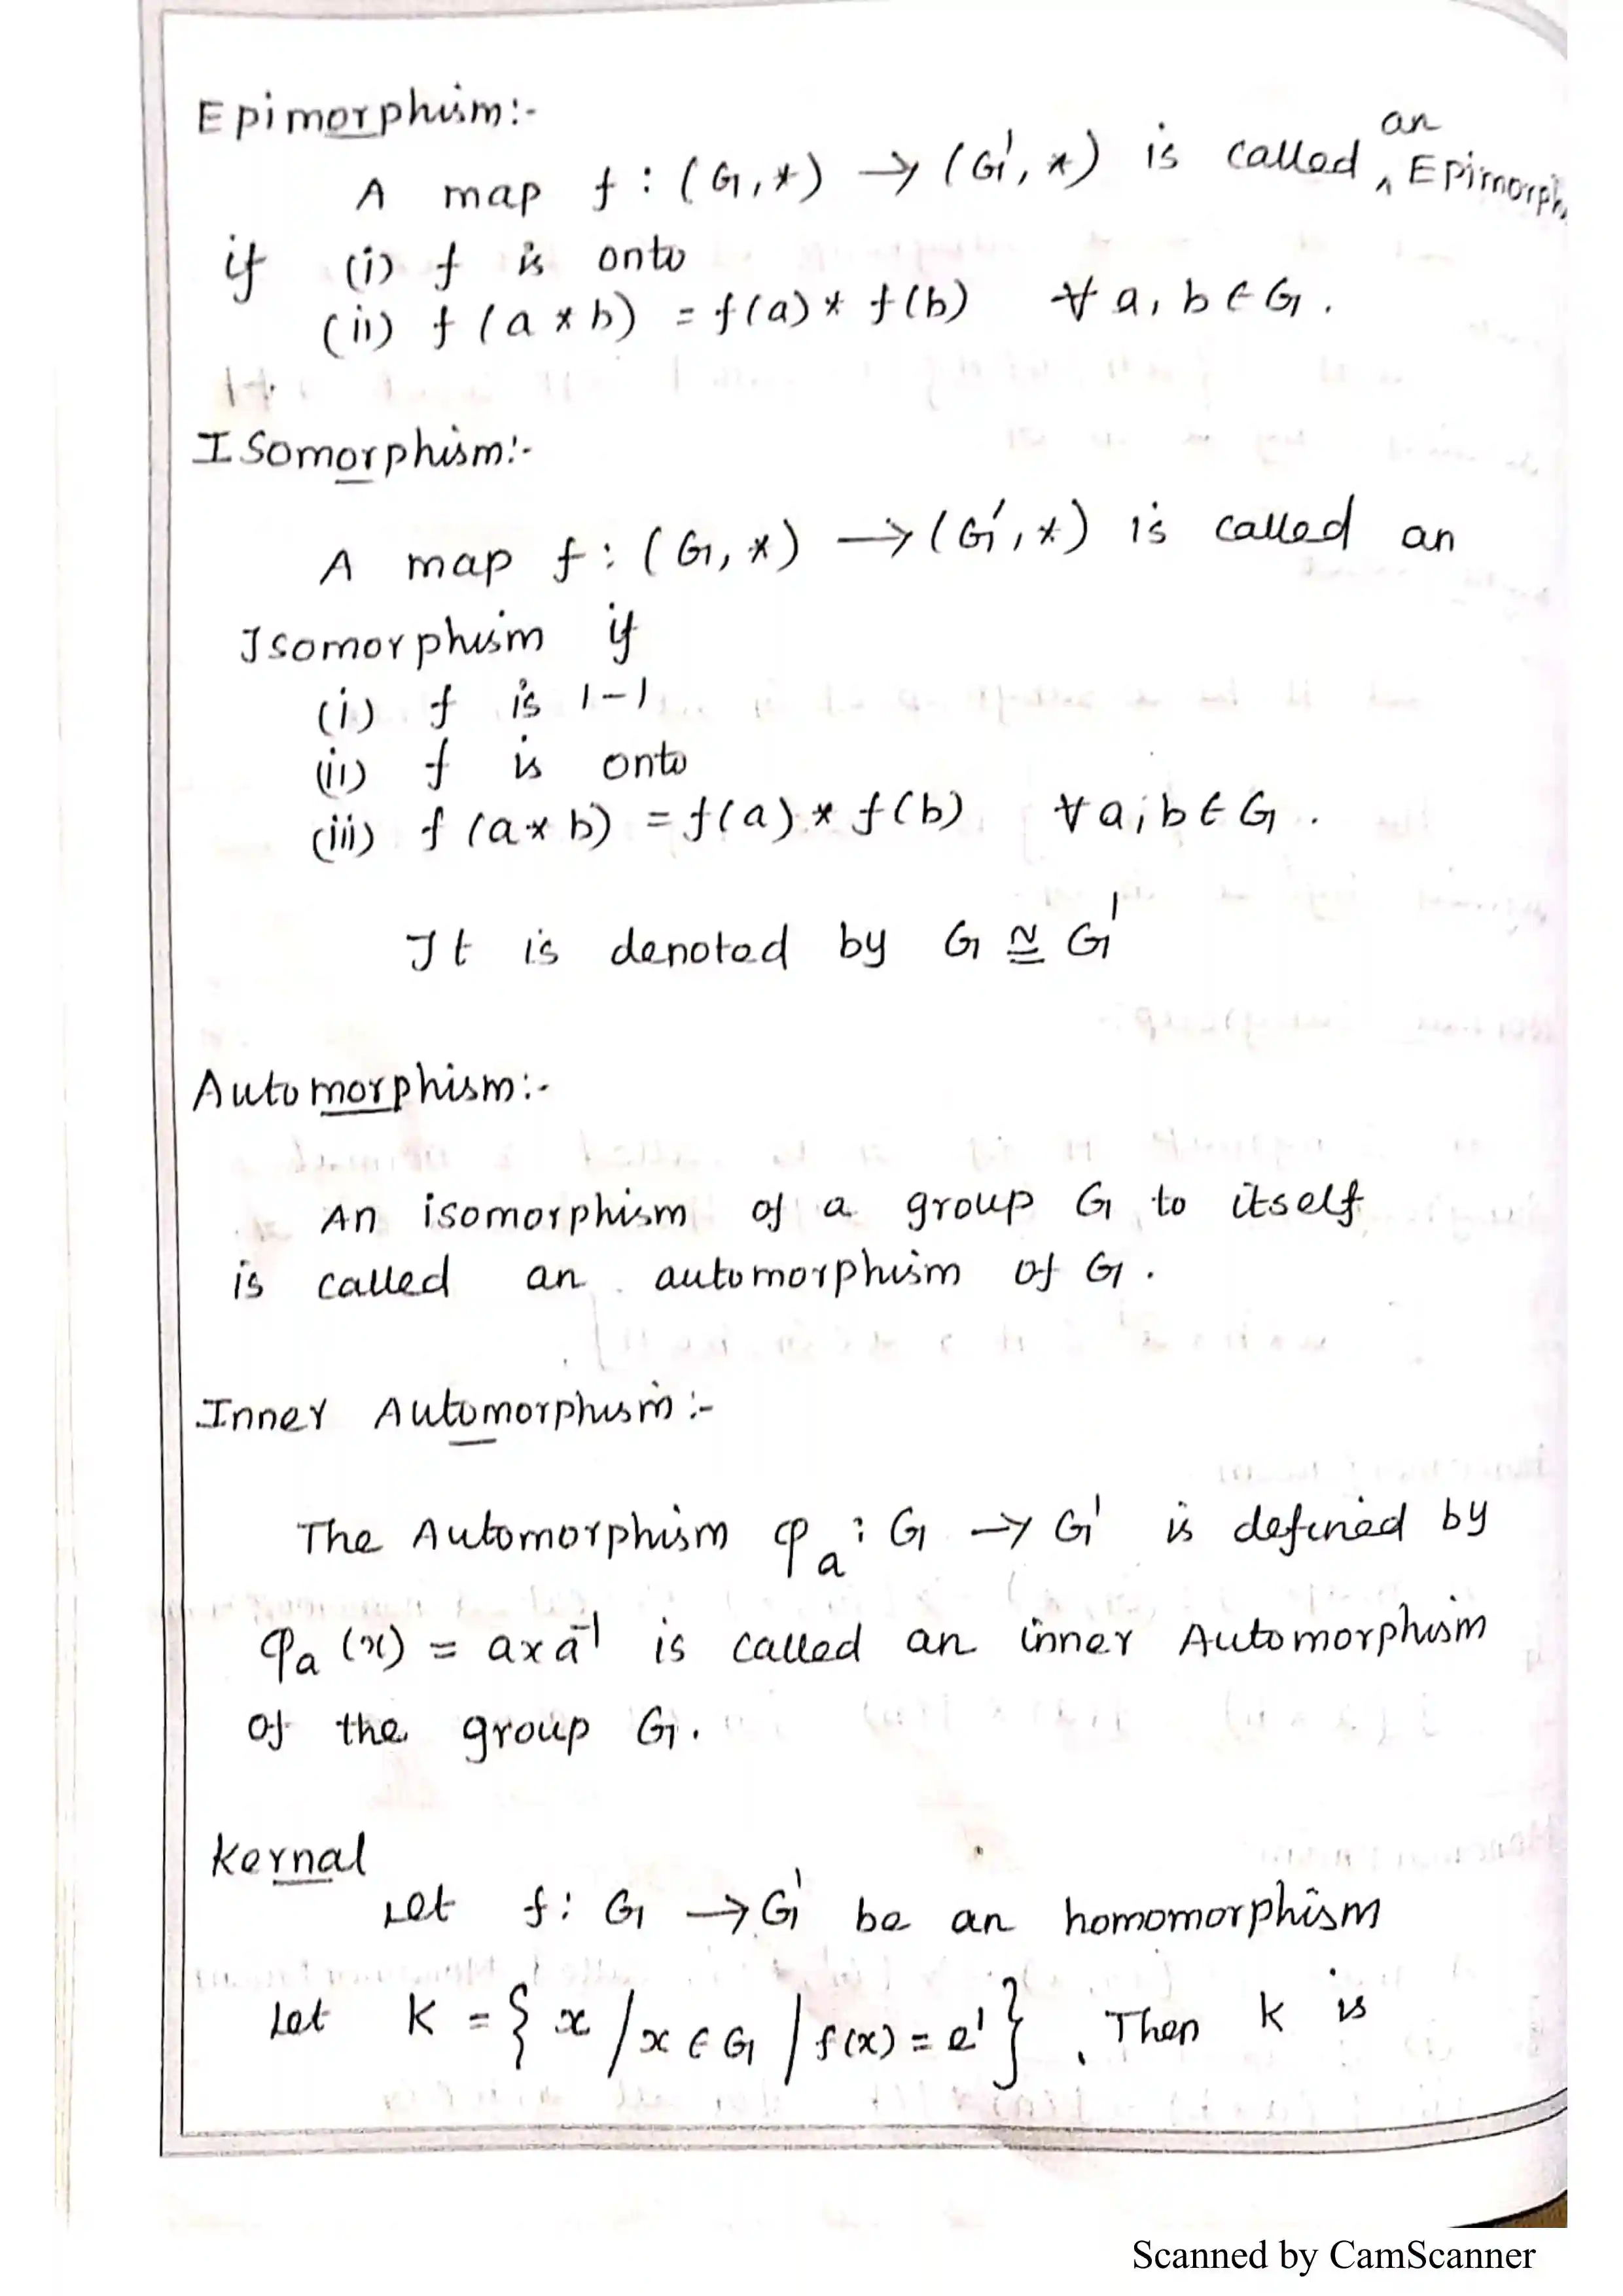 Epimorphism:-
A map f : (G, *) → (G', *) is called an
if (i) f is onto
(ii) f (a * b) = f(a) * f(b) ∀ a, b ∈ G.
Isomorphism:-
A map f : (G, *) → (G', *) is called an
Isomorphism if
(i) f is 1-1
(ii) f is onto
(iii) f (a * b) = f(a) * f(b) ∀ a, b ∈ G.
It is denoted by G ≅ G'
Automorphism:-
An isomorphism of a group G to itself
is called an automorphism of G.
Inner Automorphism:-
The Automorphism φₐ : G → G' is defined by
φₐ (x) = axa⁻¹ is called an inner Automorphism
of the group G.
Kernal
Let f : G → G' be an homomorphism
Let K = { x / x ∈ G / f(x) = e' }. Then K is
Scanned by CamScanner